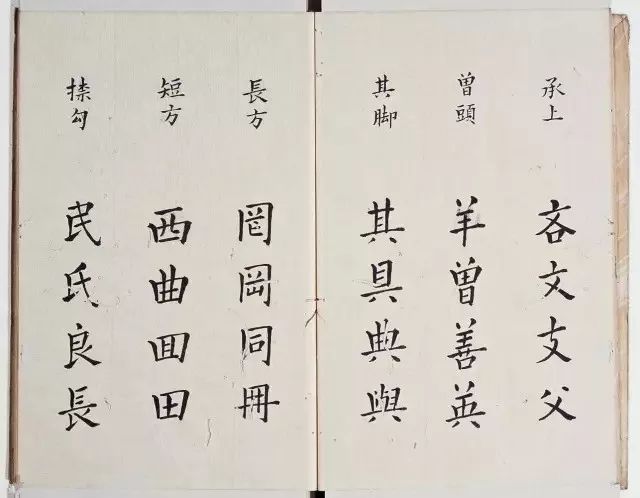 承上
吝文支父
曽頭
羊曽善英
其脚
其具典與
長方
罔岡同冊
短方
西曲囬田
捺勾
民氏良長